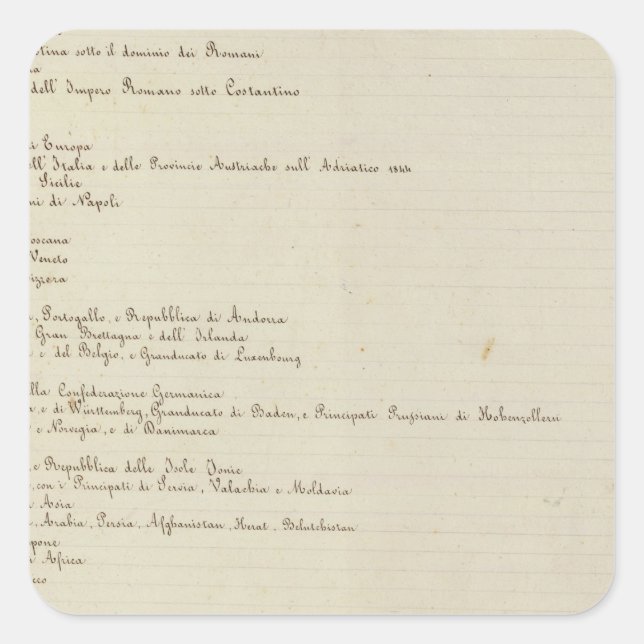 stina sotto il dominio dei Romani
na
dell' Impero Romano sotto Costantino
di Europa
ell' Italia e delle Provincie Austriache sull' Adriatico 1844
Sicilie
ni di Napoli
oscana
Veneto
izzera
, Portogallo, e Repubblica di Andorra
Gran Brettagna e dell' Irlanda
e del Belgio, e Granducato di Luxenbourg
lla Confederazione Germanica
a, e di Württemberg, Granducato di Baden, e Principati Prussiani di Hohenzollern
e Norvegia, e di Danimarca
, e Repubblica delle Isole Jonie
, con i Principati di Servia, Valachia e Moldavia
Asia
, Arabia, Persia, Afghanistan, Herat. Belutchistan
ppone
Africa
cco